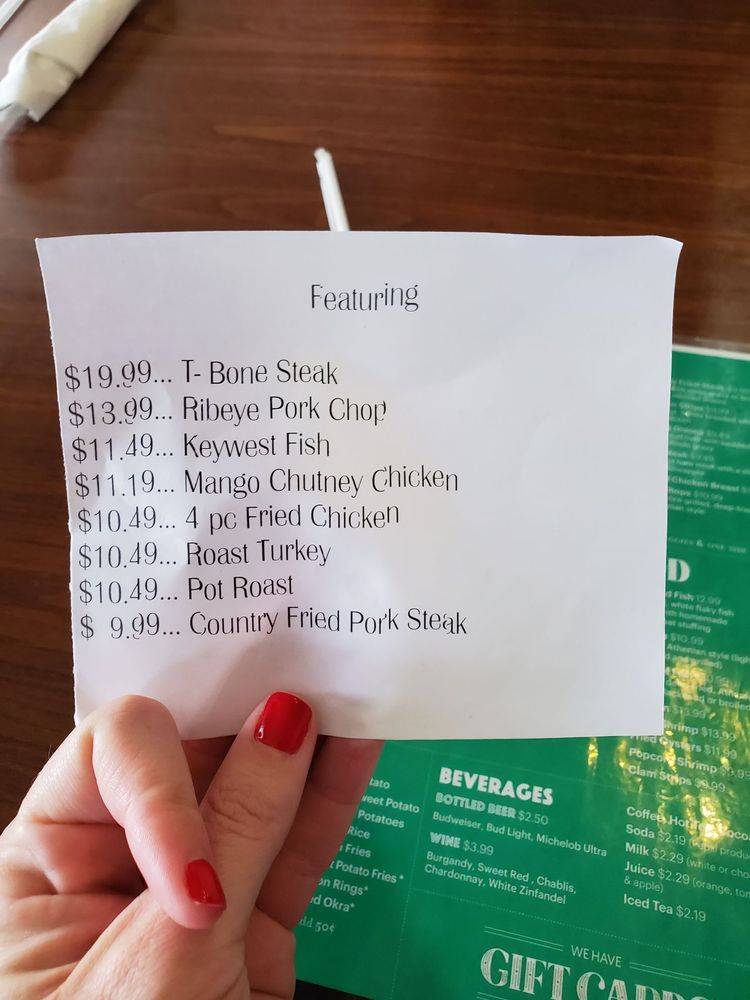 Featuring
$19.99... T- Bone Steak
$13.99... Ribeye Pork Chop
$11.49... Keywest Fish
$11.19... Mango Chutney Chicken
$10.49... 4 pc Fried Chicken
$10.49... Roast Turkey
$10.49... Pot Roast
$ 9.99... Country Fried Pork Steak
D
d Fish 12.99
white flaky fish
homemade
stuffing
$10.99
Athenian style
$13.99
hrimp $13.99
ried Oysters $11.99
Popcorn Shrimp $9.99
Clam Strips $9.99
tato
weet Potato
Potatoes
Rice
Fries
t Potato Fries*
on Rings*
ed Okra*
dd 50¢
BEVERAGES
BOTTLED BEER $2.50
Budweiser, Bud Light, Michelob Ultra
WINE $3.99
Burgandy, Sweet Red, Chablis,
Chardonnay, White Zinfandel
Coffee, Hot
Soda $2.19
Milk $2.29 (white or cho
Juice $2.29 (orange, tom
& apple)
Iced Tea $2.19
WE HAVE
GIFT CARDS